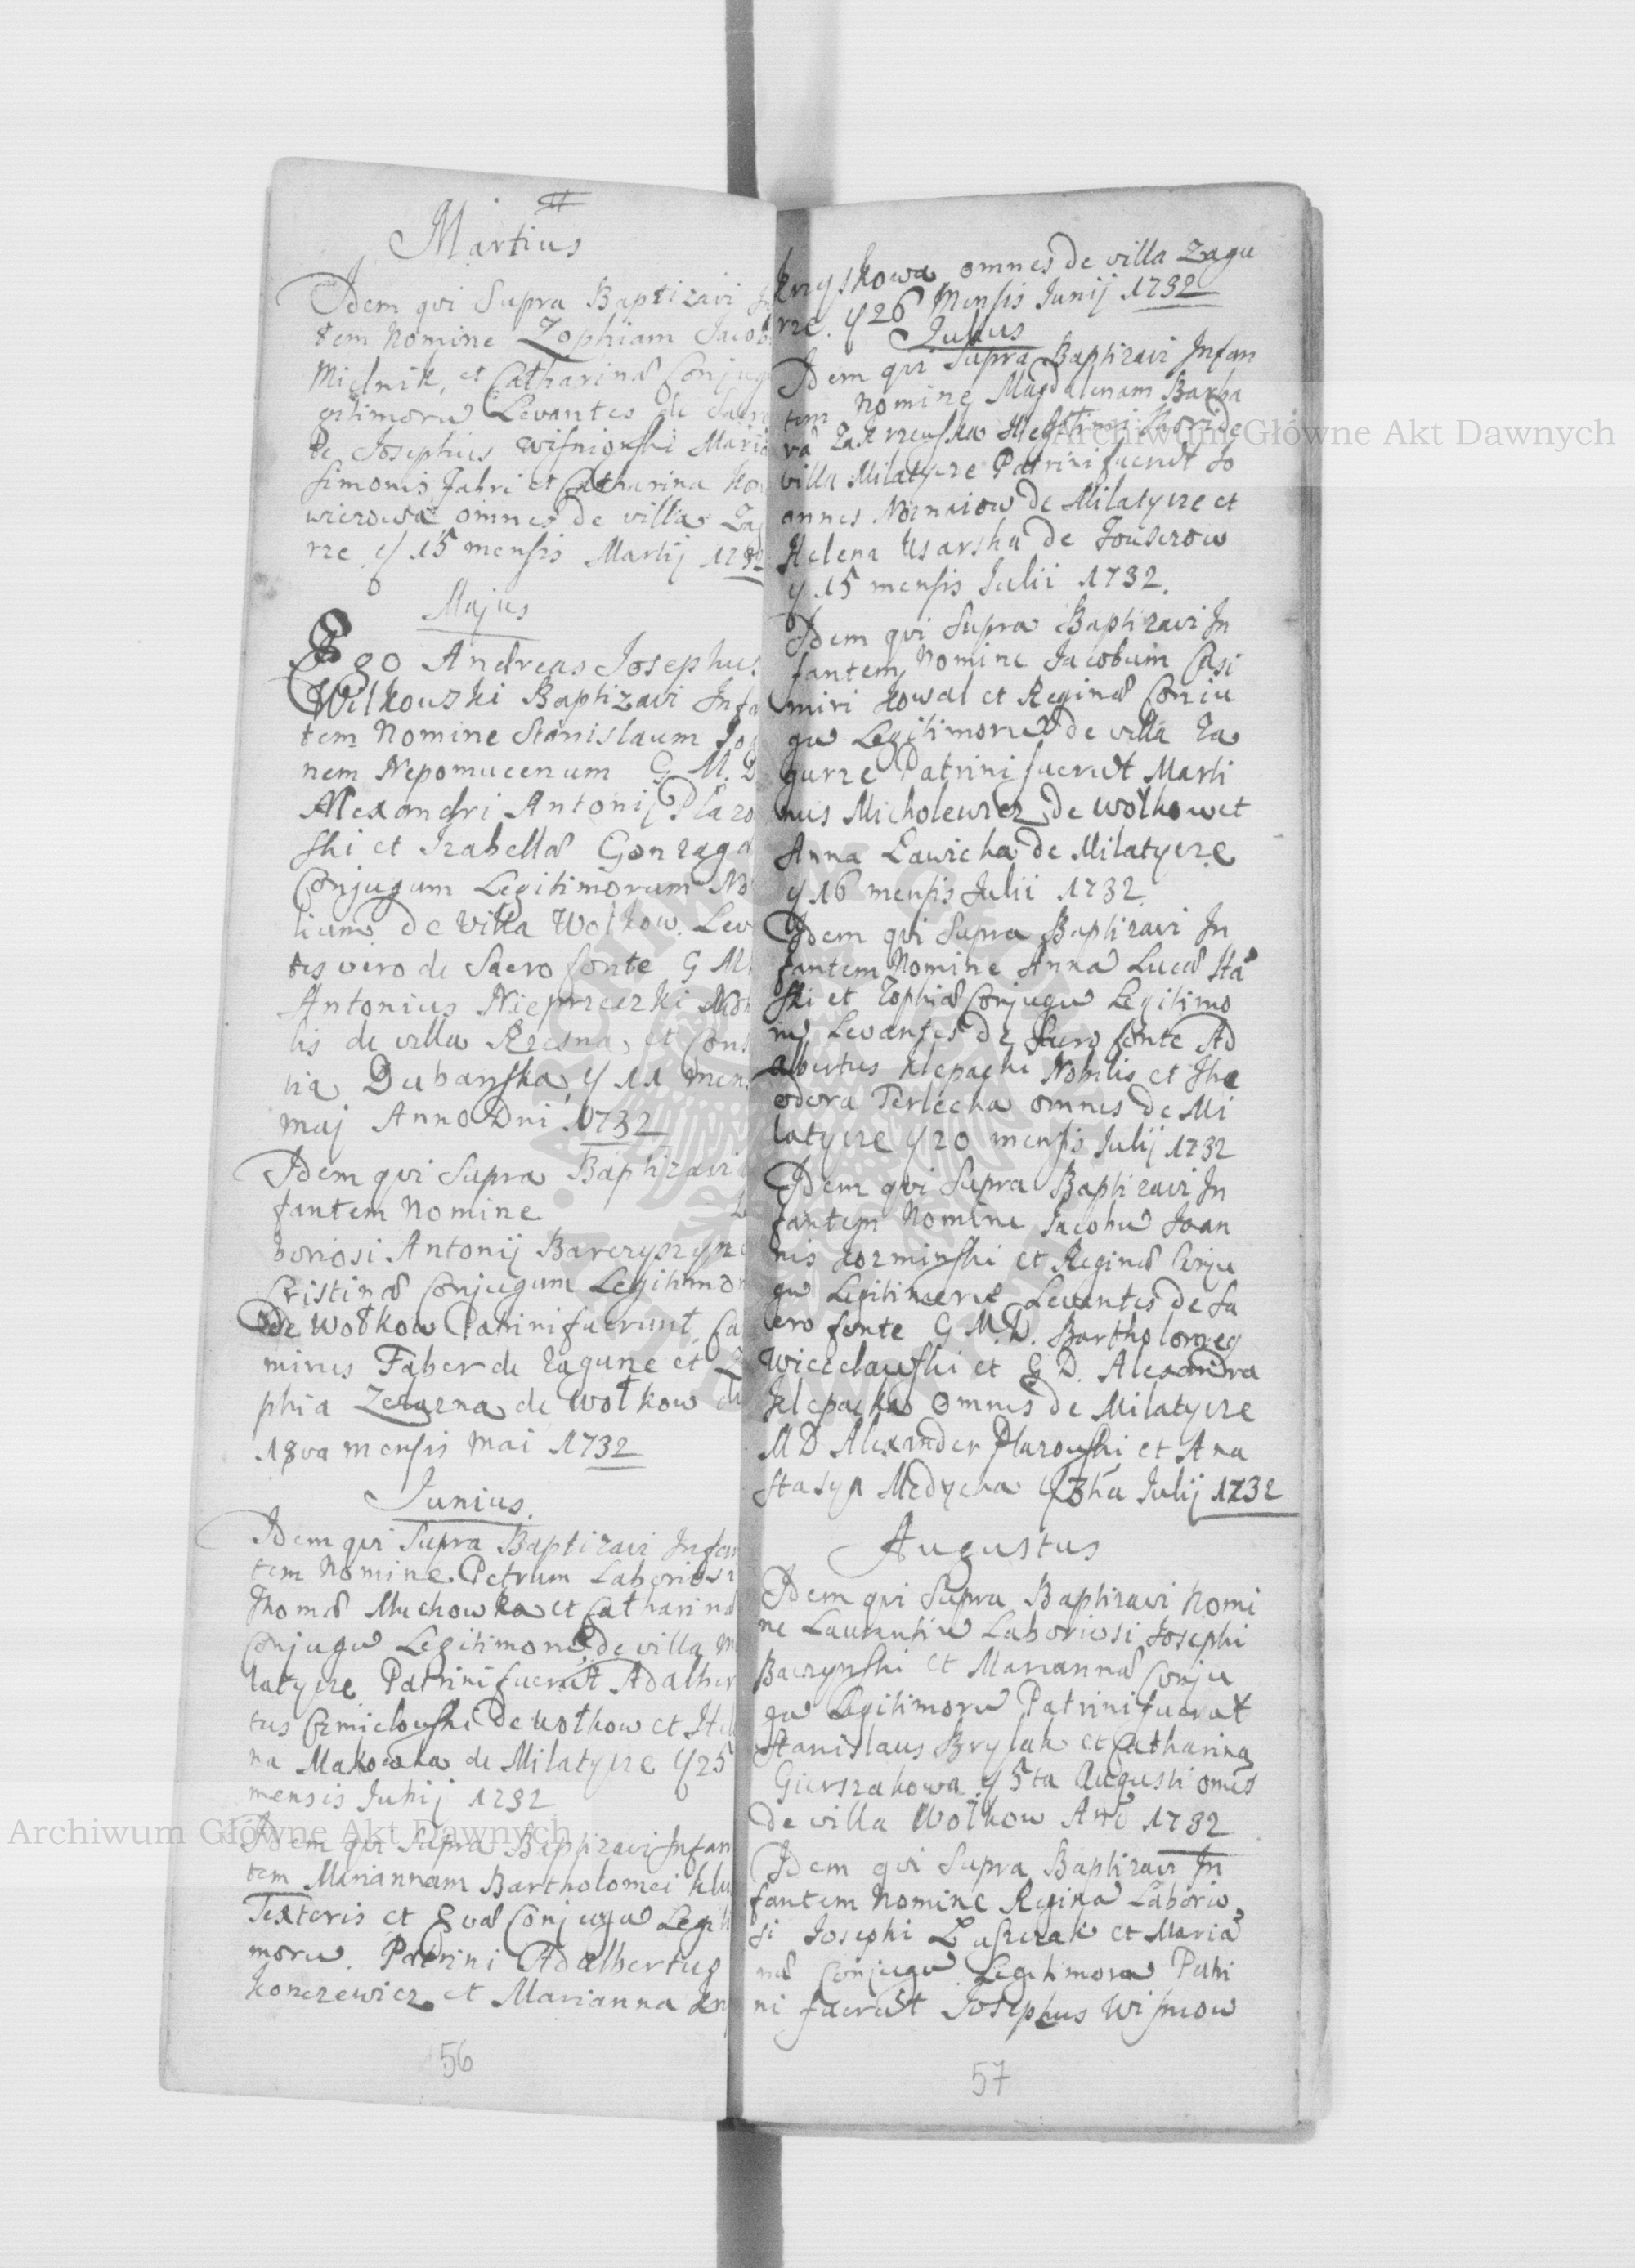 Martius
Idem qvi Supra Baptizavi In
tem Nomine Zophiam Jacob
Mielnik, et Catharinæ Conjug
gitimorũ Levantes de Sacro
te Josephus Wisniouski Maria
Simonis Fabri et Catharina
wierowa omnes de villa Zag
rze. ɥ 15 mensis Martij 1732
Majus
Ego Andreas Josephus
Wilkouszki Baptizavi Infa
tem Nomine Stanislaum Joa
nem Nepomucenum G. M. D
Alexandri Antonij Plazo
ski et Izabellæ Gonzaga
Conjugum Legitimorum No
lium de Villa Wołkow. Lev
tes vero de Sacro fonte G M
Antonius Nieprzeczki Nob
lis de villa Rzesna, et Cons
tia Dubanska, ɥ 11 men
maj Anno Dni 1732
Idem qvi Supra Baptizavi
fantem Nomine La
boriosi Antonij Barczyszyn
Cristinæ Conjugum Legitimor
de Wołkow Patrini fuerunt Ca
mirus Faber de Zagurze et Z
phia de Wołkow di
18va mensis Mai 1732
Junius
Idem qvi Supra Baptizavi Infan
tem Nomine Petrum Laboriosi
Thomæ Muchowka et Catharinæ
Conjugũ Legitimorũ de villa M
latycze Patrini fuerũt Adalber
tus Czmielouski de wołkow et Hel
na Makowka de Milatycze ɥ 25
mensis Junij 1732
Idem qvi Supra Baptizavi Infan
tem Mariannam Bartholomei
Textoris et Evæ Conjugũ Legiti
morũ. Patrini Adalbertus
Konczewicz et Marianna Kry
56
kryskowa omnes de villa Zagu
rze. ɥ 26 Mensis Junij 1732
Julius
Idem qvi Supra Baptizavi Infan
tem Nomine Magdalenam Barba
villa Milatycze Patrini fuerũt Jo
annes de Milatycze et
Helena Usarska de
ɥ 15 mensis Julii 1732.
Idem qvi Supra Baptizavi In
fantem Nomine Jacobum Casi
miri Kowal et Reginæ Conju
gũ Legitimorũ de villa Za
gurze Patrini fuerũt Marti
nus Micholewicz de Wołkow et
Anna Lawicka de Milatycze
ɥ 16 mensis Julii 1732
Idem qvi Supra Baptizavi In
fantem Nomine Annã Lucæ
ski et Zophiæ Conjugũ Legitimo
rũ Levantes de Sacro fonte Ad
albertus Klepacki Nobilis et The
odora Terlecka omnes de Mi
latycze ɥ 20 mensis Julij 1732
Idem qvi Supra Baptizavi In
fantem Nomine Jacobũ Joan
nis Kozminski et Reginæ Conju
gũ Legitimorũ Levantes de Sa
cro fonte G M. D. Bartholomeg
et G D. Alexandra
Klepacka omnes de Milatycze
M D Alexander Plazouski et Ana
stasya Medycka Julij 1732
Augustus
Idem qvi Supra Baptizavi Nomi
ne Laurentiũ Laboriosi Josephi
Baczynski et Mariannæ Conju
gũ Legitimorũ Patrini fuerũt
Stanislaus Brylak et Catharina
Gierszakowa ɥ 5ta Augusti omẽs
de villa Wołkow Añõ 1732
Idem qvi Supra Baptizavi In
fantem Nomine Reginã Laborio
si Josephi et Maria
næ Conjugũ Legitimorũ Patri
ni fuerũt Josephus Wisniow
57
Archiwum Główne Akt Dawnych
Archiwum Główne Akt Dawnych